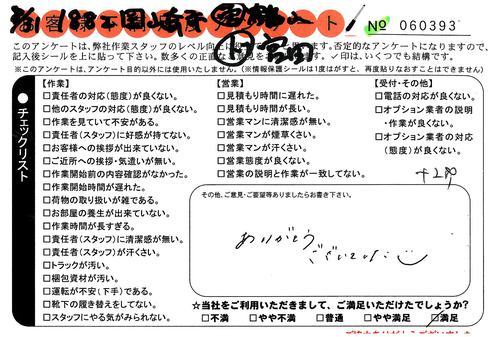 № 060393
このアンケートは、弊社作業スタッフのレベル向上に
否定的なアンケートになりますので、
記入後シールを上に貼って下さい。
✓印は、いくつでも結構です。
(※このアンケートは、アンケート目的以外には使用いたしません。)(※情報保護シールは1度はがすと、再度貼りなおすことはできません)
チェックリスト
【作業】
□責任者の対応(態度)が良くない。
□他のスタッフの対応(態度)が良くない。
□作業を見ていて不安がある。
□責任者(スタッフ)に好感が持てない。
□お客様への挨拶が出来ていない。
□ご近所への挨拶・気遣いが無い。
□作業開始前の内容確認がなかった。
□作業開始時間が遅れた。
□荷物の取り扱いが雑である。
□お部屋の養生が出来ていない。
□作業時間が長すぎる。
□責任者(スタッフ)に清潔感が無い。
□責任者(スタッフ)が汗くさい。
□トラックが汚い。
□梱包資材が汚い。
□運転が不安(下手)である。
□靴下の履き替えをしてない。
□スタッフにやる気がみられない。
【営業】
□見積もり時間に遅れた。
□見積もり時間が長い。
□営業マンに清潔感が無い。
□営業マンが煙草くさい。
□営業マンが汗くさい。
□営業態度が良くない。
□営業の説明と作業が一致してない。
【受付・その他】
□電話の対応が良くない。
□オプション業者の説明
・作業が良くない。
□オプション業者の対応
(態度)が良くない。
その他、ご意見・ご要望等ありましたらお書き下さい。
ありがとう
ございました
☆当社をご利用いただきまして、ご満足いただけたでしょうか?
□不満 □やや不満 □普通 □やや満足 □満足